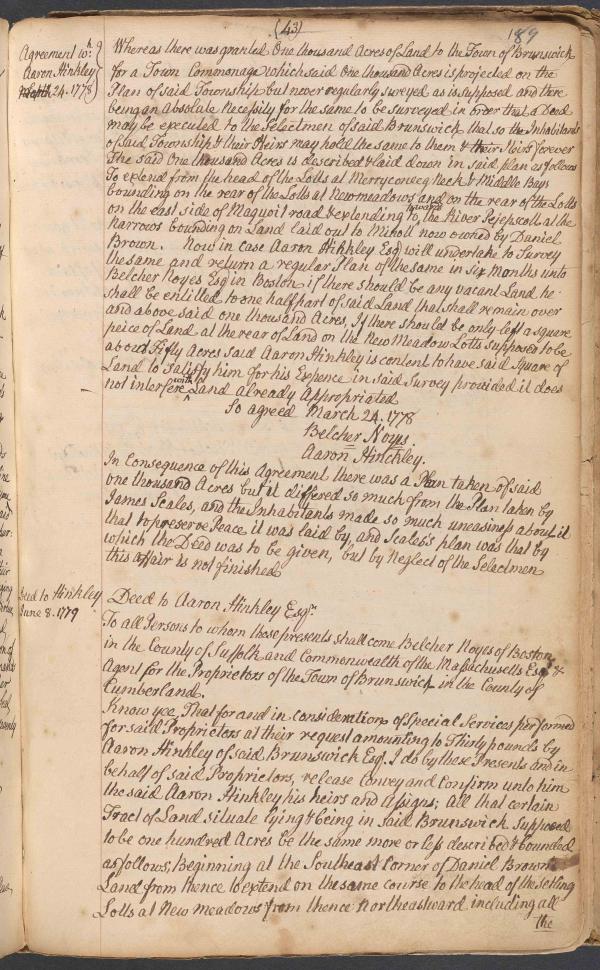 (43)
189
Agreement wh
Aaron Hinkley
March 24. 1778
Whereas there was granted One thousand Acres of Land to the Town of Brunswick
for a Town Commonage which said One thousand Acres is projected on the
Plan of said Township but never regularly surveyed as is supposed and there
being an absolute Necessity for the same to be surveyed in order that a Deed
may be executed to the Selectmen of said Brunswick that so the Inhabitants
of said Township & their Heirs may hold the same to them & their Heirs forever
The said One thousand Acres is described & laid down in said plan as follows
To extend from the head of the Lotts at Merryconeeg Neck & Middle Bay
bounding on the rear of the Lotts at Newmeadows and on the rear of the Lotts
on the east side of Maquoit road & extending towards the River Pejepscott at the
Narrows bounding on Land laid out to Mikoll now owned by Daniel
Brown. Now in case Aaron Hinkley Esq will undertake to Survey
the same and return a regular Plan of the same in Six Months unto
Belcher Noyes Esq in Boston if there should be any vacant Land he
shall be entitled to one half part of said Land that shall remain over
and above said one thousand Acres, If there should be only left a square
peice of Land at the rear of Land on the New Meadow Lotts supposed to be
about Fifty Acres said Aaron Hinkley is content to have said Square of
Land to Satisfy him for his Expence in said Survey provided it does
not interfere with Land already Appropriated
So agreed March 24. 1778
Belcher Noyes.
Aaron Hinchley.
In Consequence of this Agreement there was a Plan taken of said
one thousand Acres but it differed so much from the Plan taken by
James Scales, and the Inhabitants made so much uneasiness about it
that to preserve Peace it was laid by, and Scales's plan was that by
which the Deed was to be given, but by Neglect of the Selectmen
this affair is not finished
Deed to Hinkley
June 8. 1779
Deed to Aaron Hinkley Esqr
To all Persons to whom these presents shall come Belcher Noyes of Boston
in the County of Suffolk and Commonwealth of the Massachusetts Esqr &
Agent for the Proprietors of the Town of Brunswick in the County of
Cumberland.
Know yee, That for and in consideration of Special Services performed
for said Proprietors at their request amounting to Thirty pounds by
Aaron Hinkley of said Brunswick Esq. I do by these Presents and in
behalf of said Proprietors, release Convey and Confirm unto him
the said Aaron Hinkley his heirs and Assigns; all that certain
Tract of Land situate lying & being in said Brunswick Supposed
to be one hundred Acres be the same more or less described & bounded
as follows; Beginning at the Southeast Corner of Daniel Browns
Land from thence to extend on the same course to the head of the setling
Lotts at New meadows from thence Northeastward including all
the